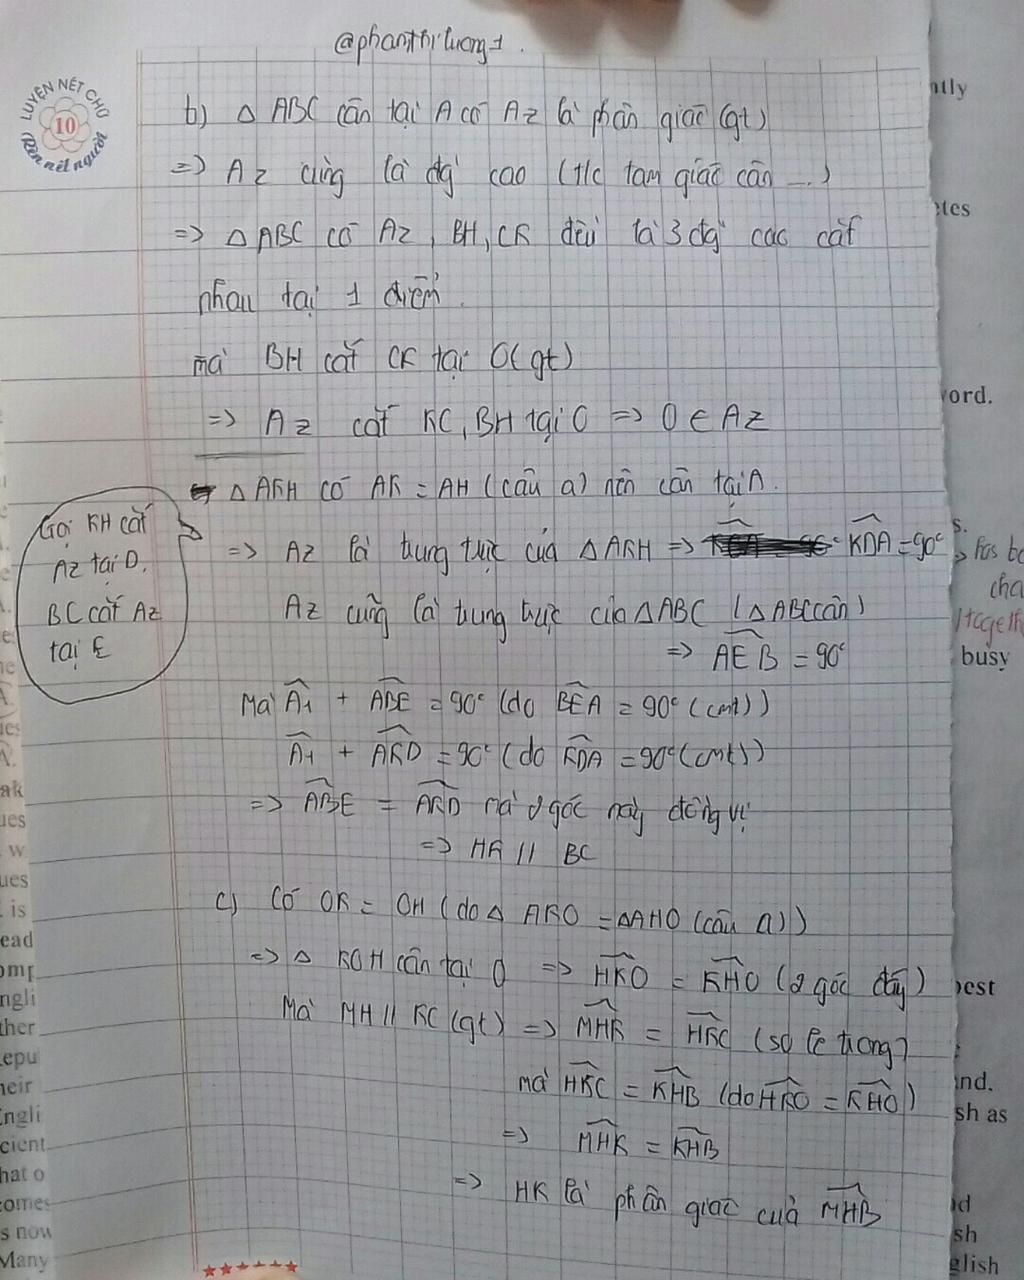 @phanthituong1.
LUYỆN NÉT CHỮ
10
Rèn nết người
b) Δ ABC cân tại A có Az là phân giác (gt)
=> Az cũng là đg cao (t/c tam giác cân ...)
=> Δ ABC có Az, BH, CK đều là 3 đg cao cắt
nhau tại 1 điểm.
mà BH cắt CK tại O (gt)
=> Az cắt KC, BH tại O => O ∈ Az
Δ AKH có AK = AH (câu a) nên cân tại A.
Gọi KH cắt
Az tại D.
BC cắt Az
tại E
=> Az là trung trực của Δ AKH => \widehat{KDA} = 90°
Az cũng là trung trực của Δ ABC (Δ ABC cân)
=> \widehat{AEB} = 90°
Mà \widehat{A_1} + \widehat{ABE} = 90° (do \widehat{BEA} = 90° (cmt))
\widehat{A_1} + \widehat{AKD} = 90° (do \widehat{KDA} = 90° (cmt))
=> \widehat{ABE} = \widehat{AKD} mà 2 góc này đồng vị
=> HK // BC
c) Có OK = OH (do Δ AKO = Δ AHO (câu a))
=> Δ KOH cân tại O => \widehat{HKO} = \widehat{KHO} (2 góc đáy)
Mà MH // KC (gt) => \widehat{MHK} = \widehat{HKC} (so le trong)
mà \widehat{HKC} = \widehat{KHB} (do \widehat{HKO} = \widehat{KHO})
=> \widehat{MHK} = \widehat{KHB}
=> HK là phân giác của \widehat{MHB}
ord.
busy
best
nd.
sh as
sh
glish
Many